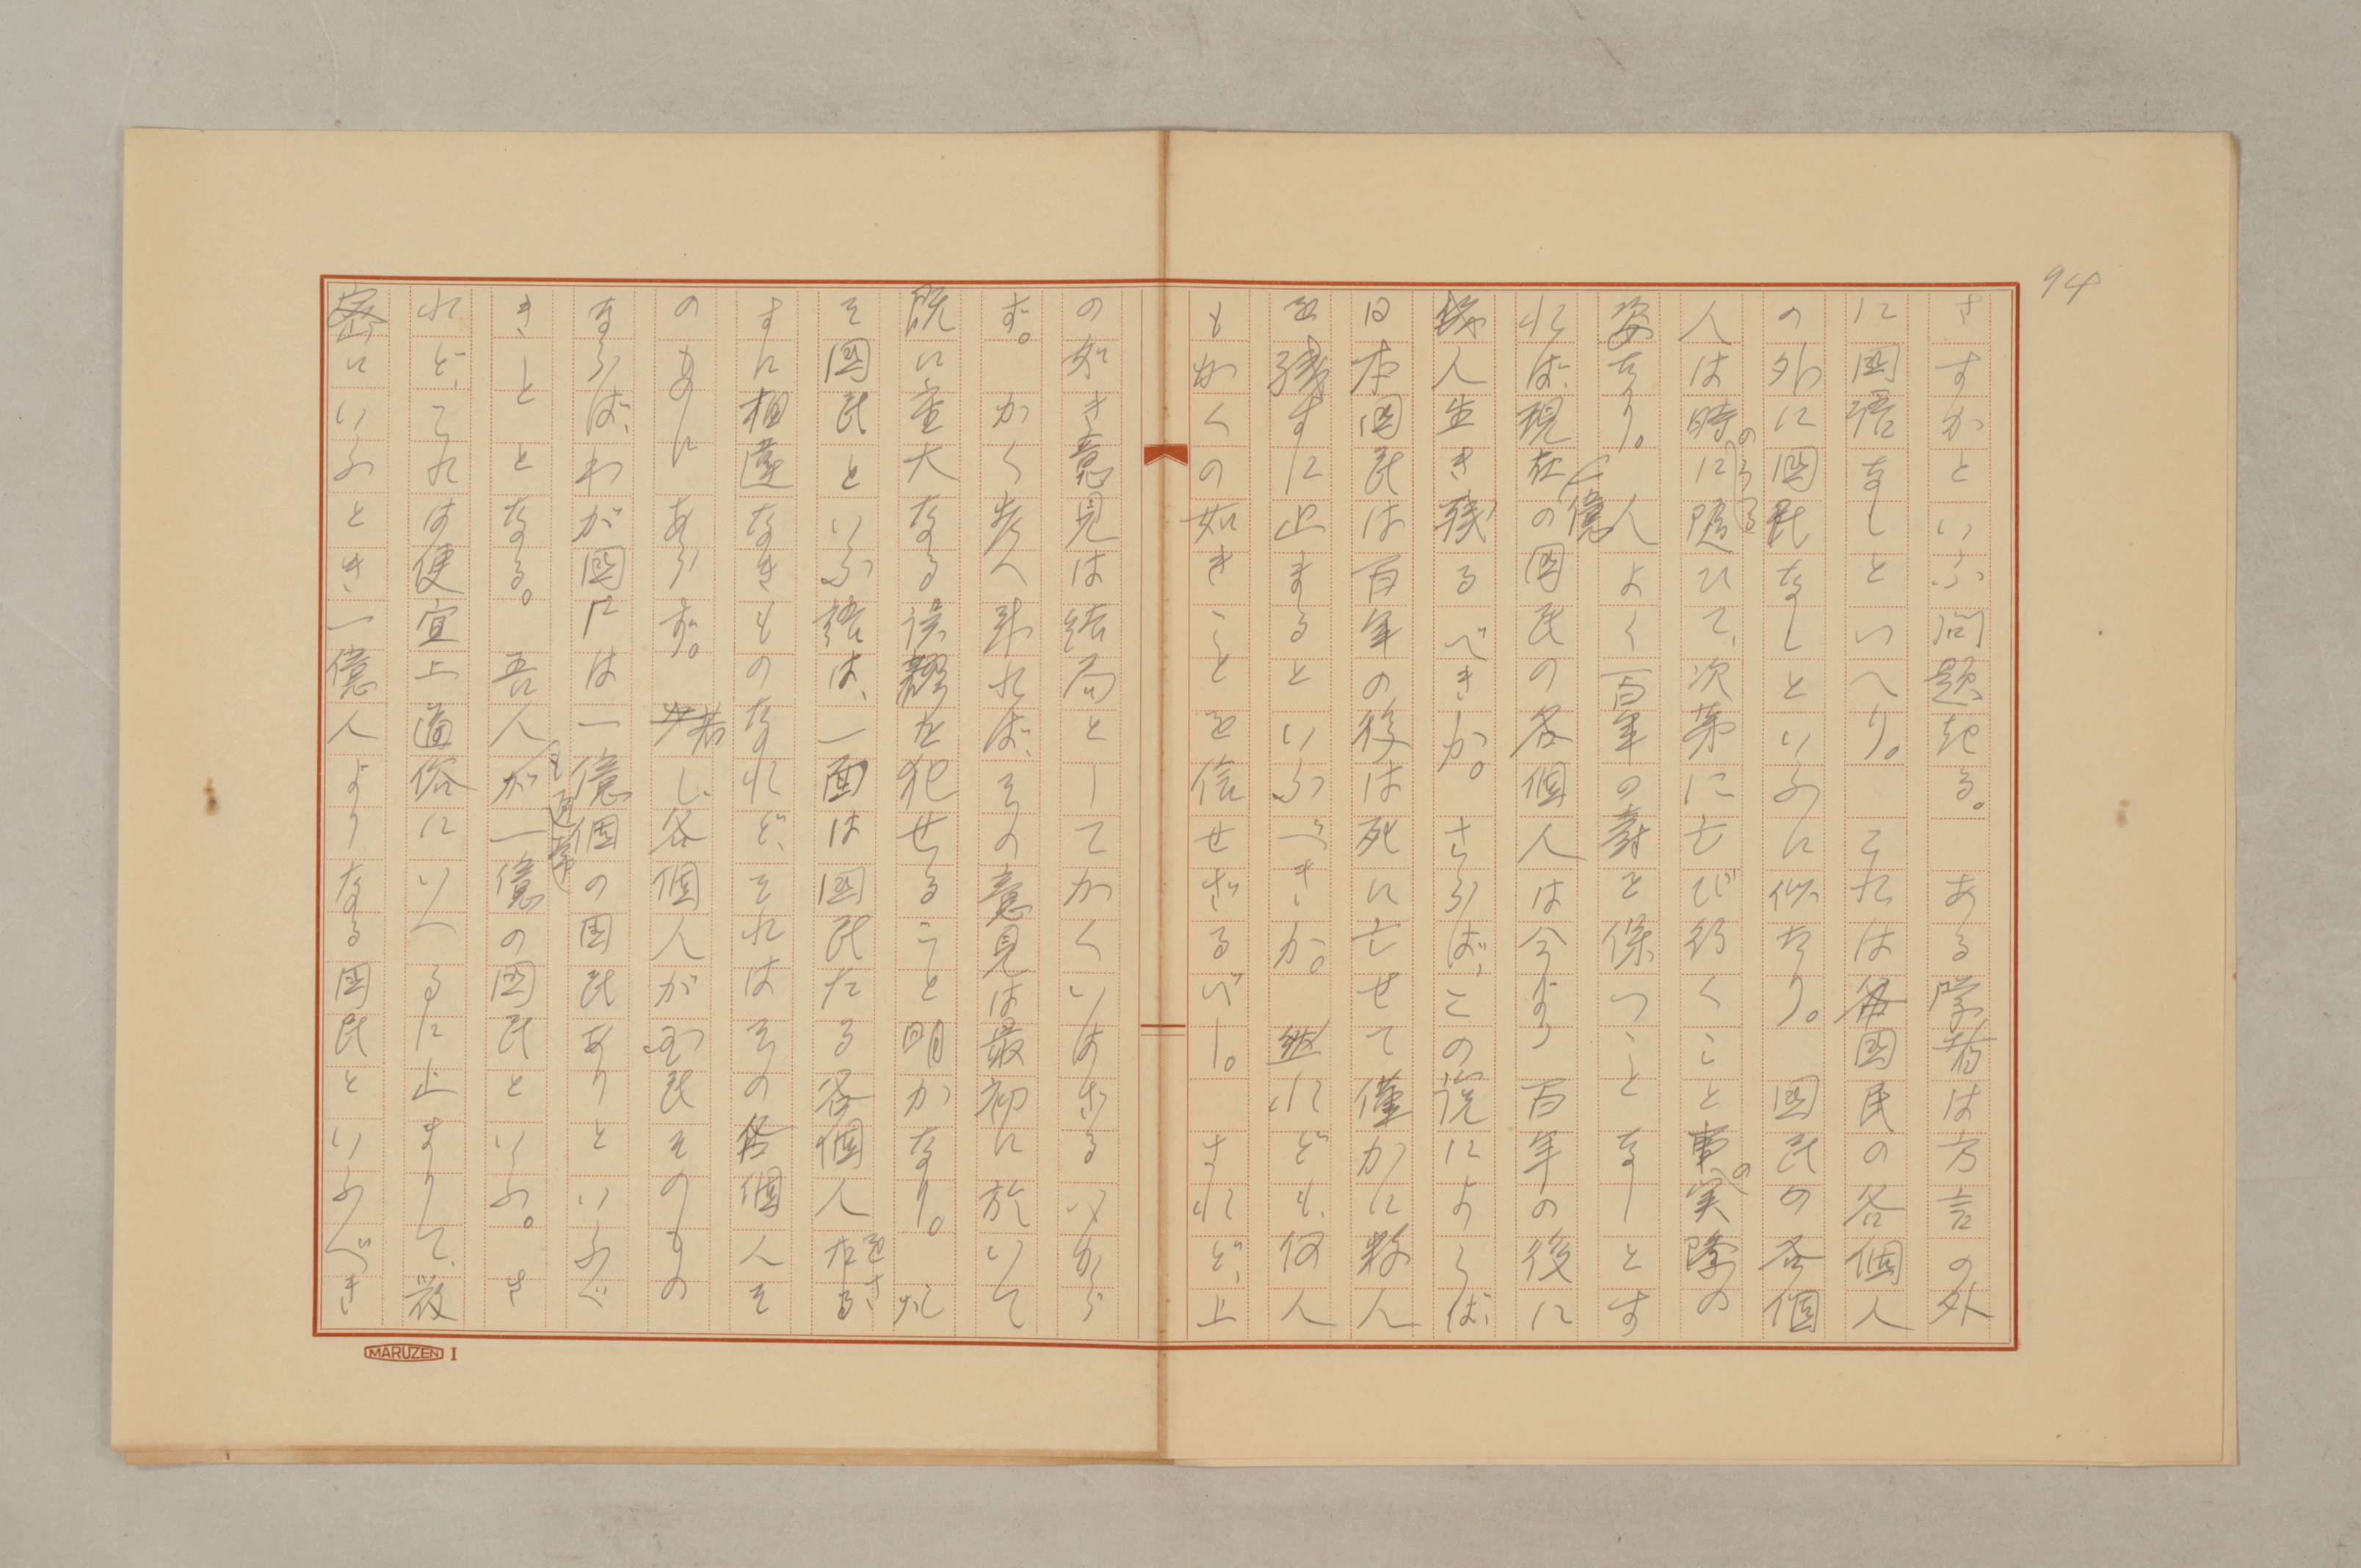 94
さすかといふ問題起る。 ある学者は方言の外
に国語なしといへり。 これは各国民の各個人
の外に国民なしといふに似たり。 国民の各個
人は時にのうつるに随ひて、次第に亡び行くこと事実の
姿なり。 一億人よく百年の齢を保つことなしとす
れば、現在の国民の各個人は今より百年の後に
幾人生き残るべきか。 さらば、この説によらば
日本国民は百年の後は死に亡せて僅かに数人
を残すに止まるといふべきか。 然れども、何人
もかくの如きことを信せざるべし。 されど、上
の如き意見は結局としてかくいはざるべから
ず。 かく考へ来れば、その意見は最初に於いて
既に重大なる誤謬を犯せること明かなり。 凡
そ国民といふ語は、一面は国民たる各個人をさ
すに相違なきものなれど、それはその各個人そ
のものにあらず。 若し、各個人が国民そのもの
ならば、わが国には一億個の国民ありといふべ
きこととなる。 吾人も通常が一億の国民といふ。 さ
れど、これは便宜上通俗にいへるに止まりて、厳
密にいふとき一億人よりなる国民といふべき
MARUZEN I